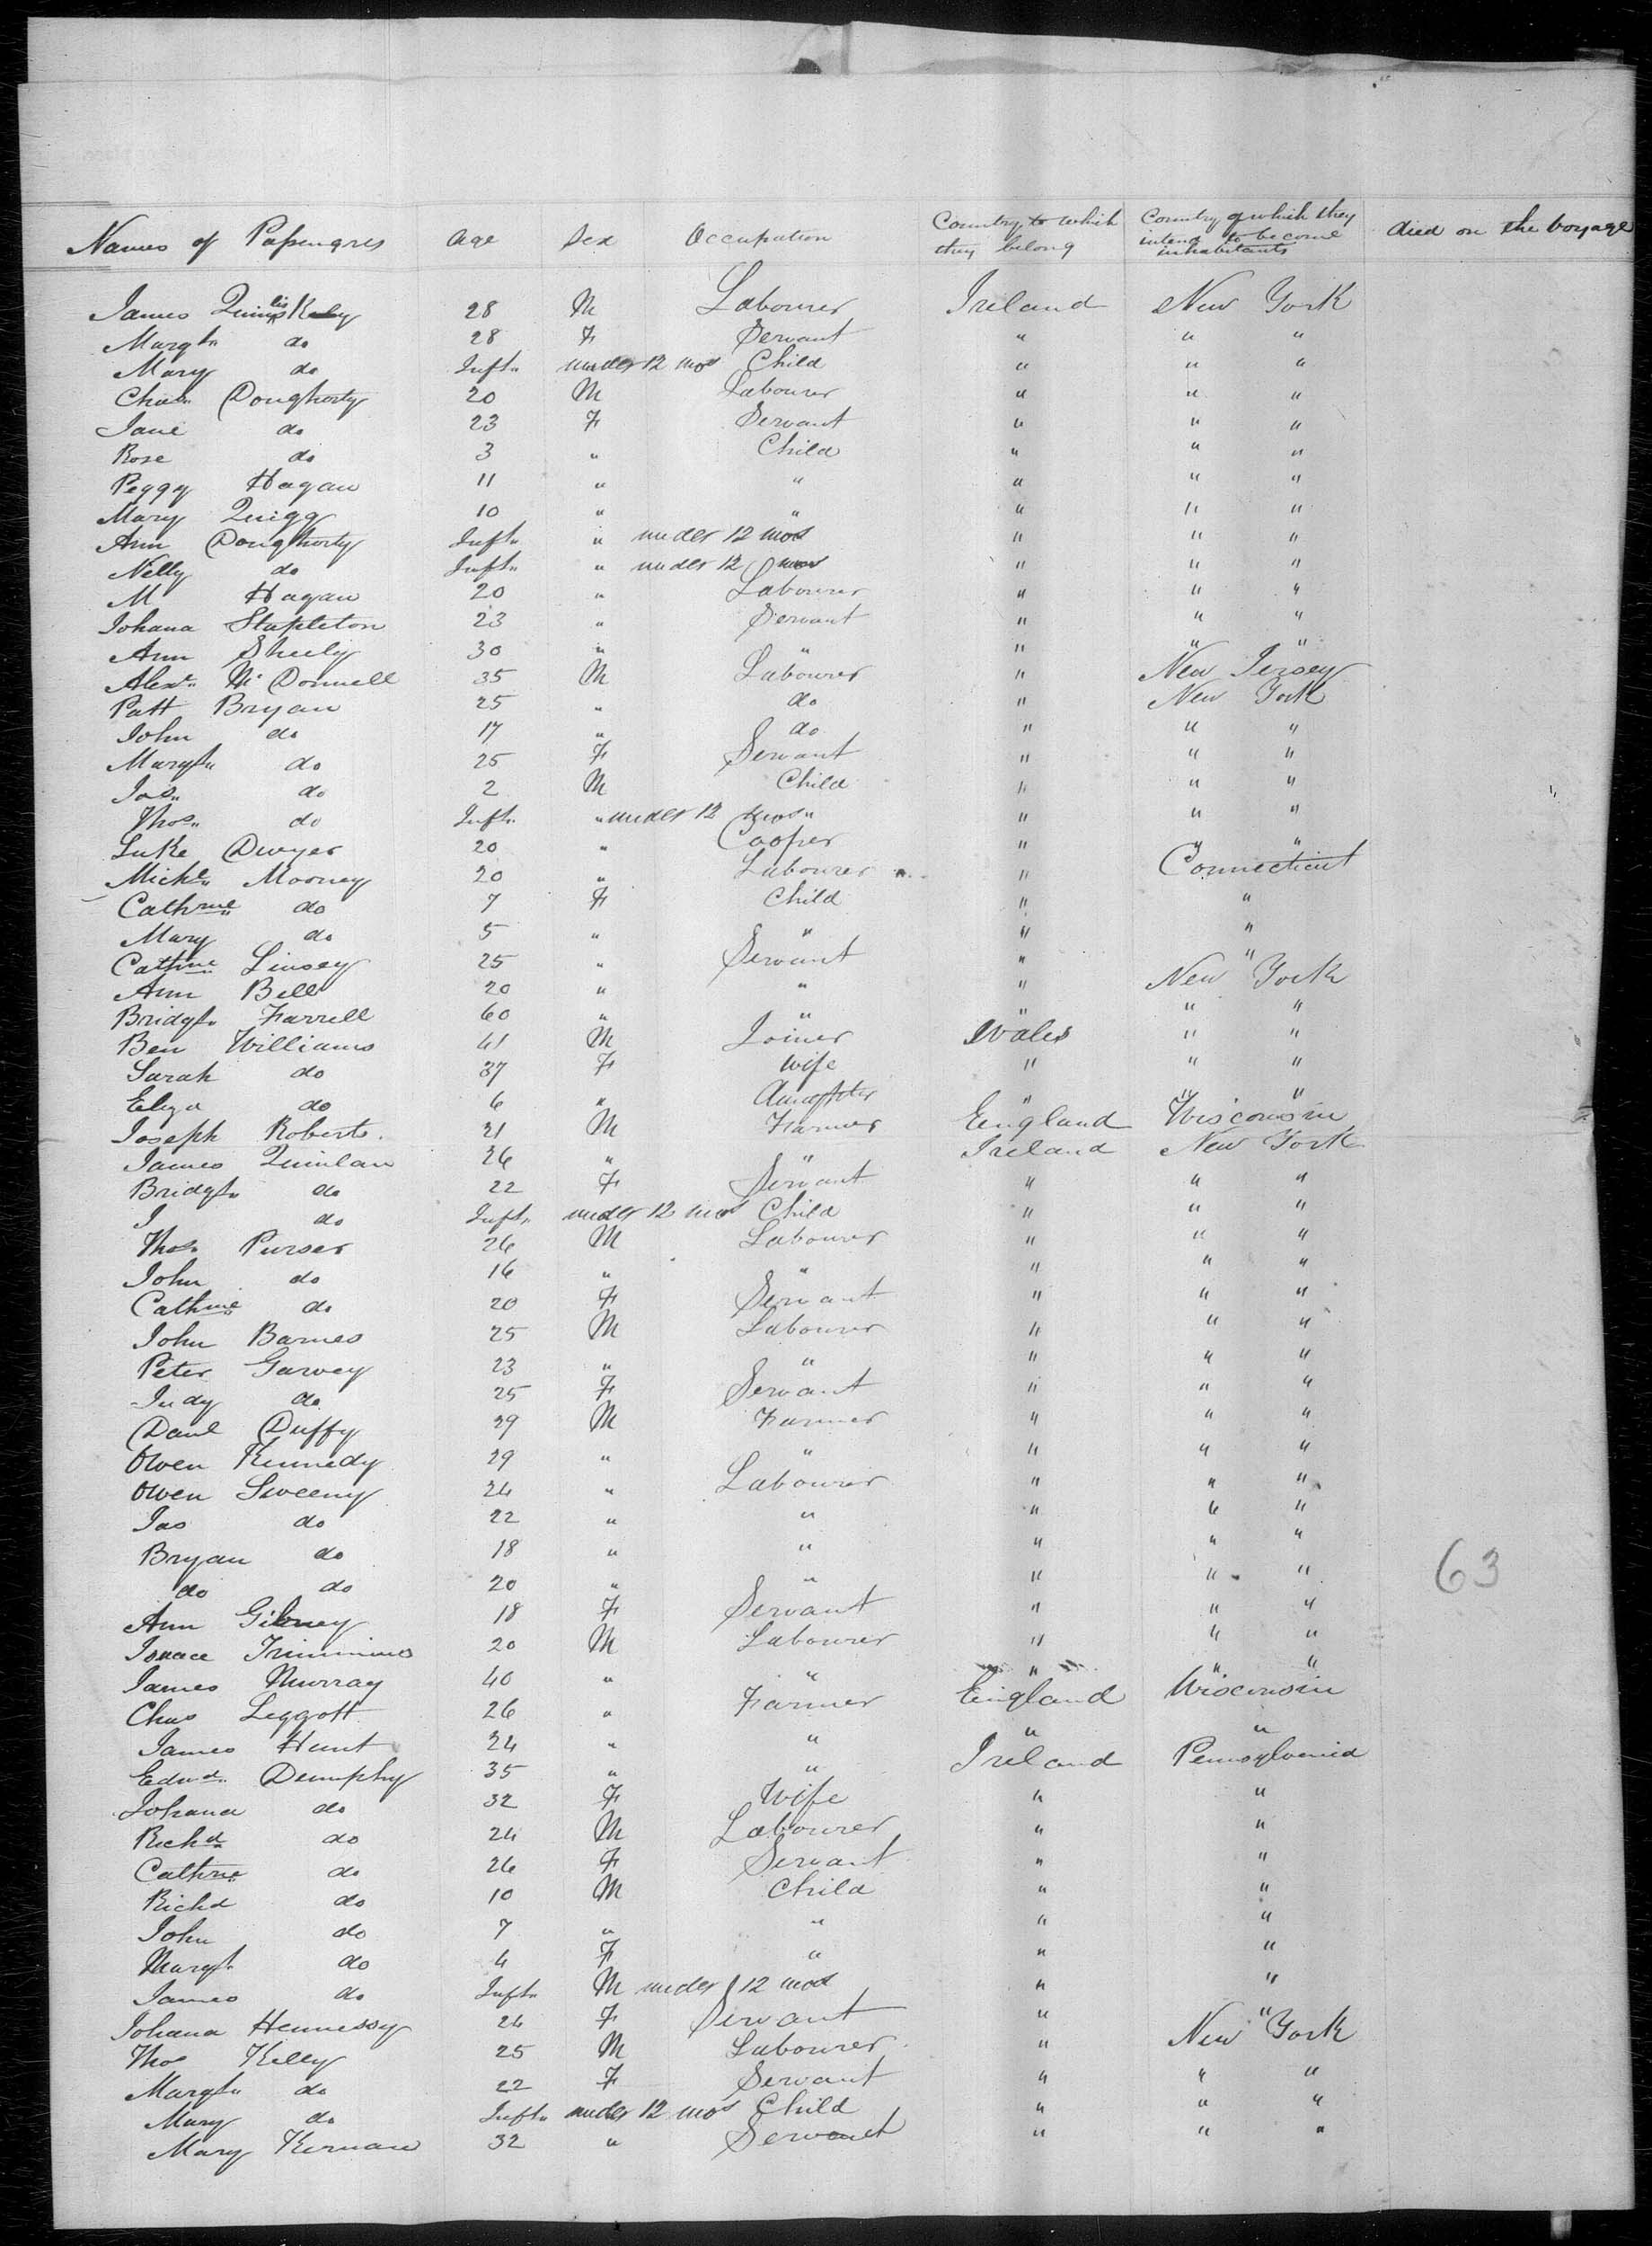 Names of Passengres Age Sex Occupation Country to which they belong Country of which they intend to become inhabitants died on the voyage
James 28 M Labourer Ireland New York
Margt. do 28 F Servant " " "
Mary do Inft. under 12 mos Child " " "
Chas. Doughorty 20 M Labourer " " "
Jane do 23 F Servant " " "
Rose do 3 " Child " " "
Peggy Hagan 11 " " " " "
Mary Quigg 10 " " " " "
Ann Doughorty Inft. " under 12 mos " " "
Nelly do Inft. " under 12 mos " " "
M Hagan 20 " Labourer " " "
Johana Stapleton 23 " Servant " " "
Ann Sheely 30 " " " " "
Alexr. Mc Donnell 35 M Labourer " New Jersey
Patt Bryan 25 " do " New York
John do 17 " do " " "
Margt. do 25 F Servant " " "
Jas. do 2 M Child " " "
Thos. do Inft. " under 12 mos " " "
Luke Dwyer 20 " Cooper " " "
Michl. Mooney 20 " Labourer " Connecticut
Cathrne do 7 F Child " "
Mary do 5 " " " "
Cathne Linsey 25 " Servant " "
Ann Bell 20 " " " New York
Bridgt. Farrell 60 " " " " "
Ben Williams 41 M Joiner Wales " "
Sarah do 37 F Wife " " "
Eliza do 6 " daughter " " "
Joseph Roberts. 21 M Farmer England Wisconsin
James Quinlan 26 " " Ireland New York
Bridgt. do 22 F Servant " " "
J do Inft. under 12 mos Child " " "
Thos. Purser 26 M Labourer " " "
John do 16 " " " " "
Cathne do 20 F Servant " " "
John Barnes 25 M Labourer " " "
Peter Garvey 23 " " " " "
Judy do 25 F Servant " " "
Danl Duffy 29 M Farmer " " "
Owen Kennedy 29 " " " " "
Owen Sweeny 24 " Labourer " " "
Jas do 22 " " " " "
Bryan do 18 " " " " "
do do 20 " " " " "
63
Ann Gibney 18 F Servant " " "
20 M Labourer " " "
James Murray 40 " " " " "
Chas Leggott 26 " Farmer England Wisconsin
James Hunt 24 " " " "
Edwd. Dumphy 35 " " Ireland Pennsylvenia
Johana do 32 F Wife " "
Richd do 24 M Labourer " "
Cathrne do 26 F Servant " "
Richd do 10 M Child " "
John do 7 " " " "
Margt. do 4 F " " "
James do Inft. M under 12 mos " "
Johana Hennessy 24 F Servant " "
Thos Kelly 25 M Labourer " New York
Margt. do 22 F Servant " " "
Mary do Inft. under 12 mos Child " " "
Mary Kernan 32 " Servant " " "